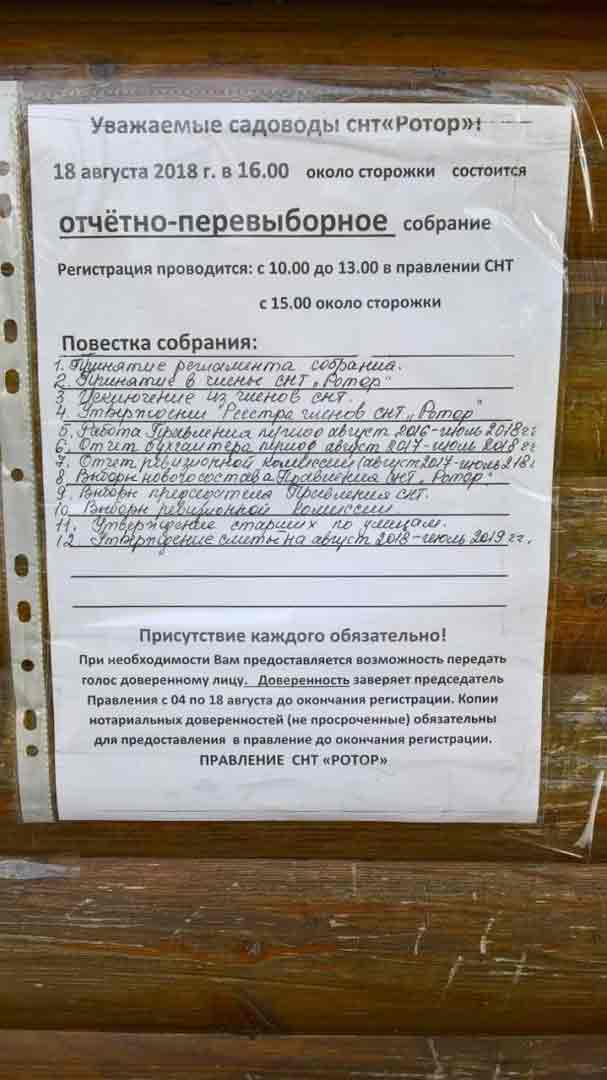 Уважаемые садоводы снт«Ротор»!
18 августа 2018 г. в 16.00 около сторожки состоится
отчётно-перевыборное собрание
Регистрация проводится: с 10.00 до 13.00 в правлении СНТ
с 15.00 около сторожки
Повестка собрания:
1. Принятие регламента собрания.
2. Принятие в члены СНТ „Ротор"
3 Исключение из членов СНТ.
4. Утверждении Реестра членов СНТ „Ротор"
5. Работа Правления период август 2016-июль 2018гг
6. Отчет бухгалтера период август 2017-июль 2018 гг
7. Отчет ревизионной комиссии (август 2017-июль 218г
8. Выборы нового состава Правления СНТ „Ротор"
9. Выборы председателя Правления СНТ.
10 Выборы ревизионной комиссии
11. Утверждение старших по улицам.
12. Утверждение сметы на август 2018-июль 2019 гг.
Присутствие каждого обязательно!
При необходимости Вам предоставляется возможность передать
голос доверенному лицу. Доверенность заверяет председатель
Правления с 04 по 18 августа до окончания регистрации. Копии
нотариальных доверенностей (не просроченные) обязательны
для предоставления в правление до окончания регистрации.
ПРАВЛЕНИЕ СНТ «РОТОР»